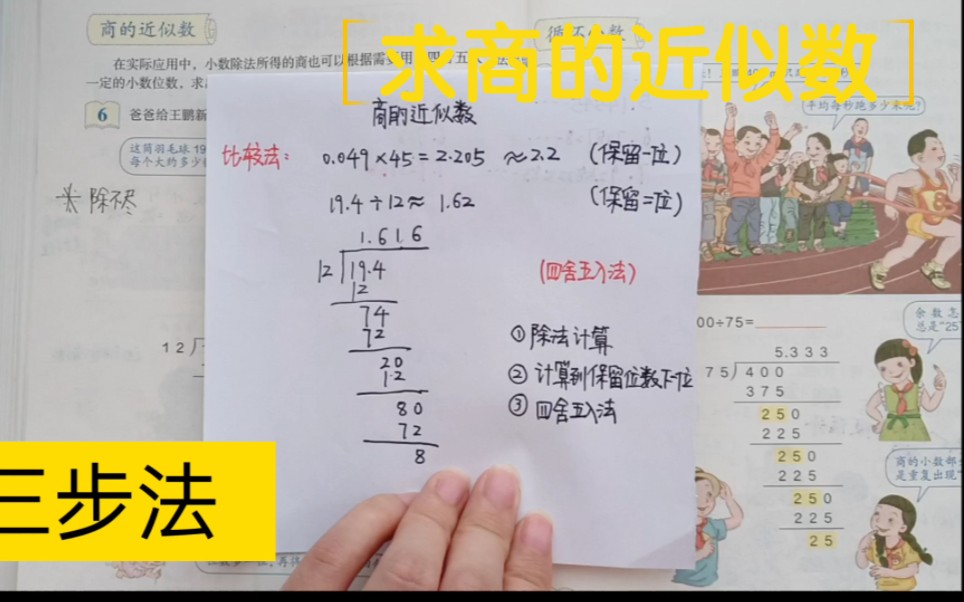 求商的近似数
商的近似数
循环小数
在实际应用中，小数除法所得的商也可以根据需要用
一定的小数位数，求
6 爸爸给王鹏新
这筒羽毛球19
每个大约多少
平均每秒跑多少米呢?
除尽
商的近似数
比较法: 0.049×45=2.205 ≈2.2 (保留一位)
19.4÷12≈ 1.62 (保留二位)
1.616
12 19.4
12
74
72
20
12
80
72
8
(四舍五入法)
①除法计算
②计算到保留位数下一位
③四舍五入法
12
00÷75=
5.333
75 400
375
250
225
250
225
250
225
25
余数怎
总是“25”
商的小数部
是重复出现
三步法